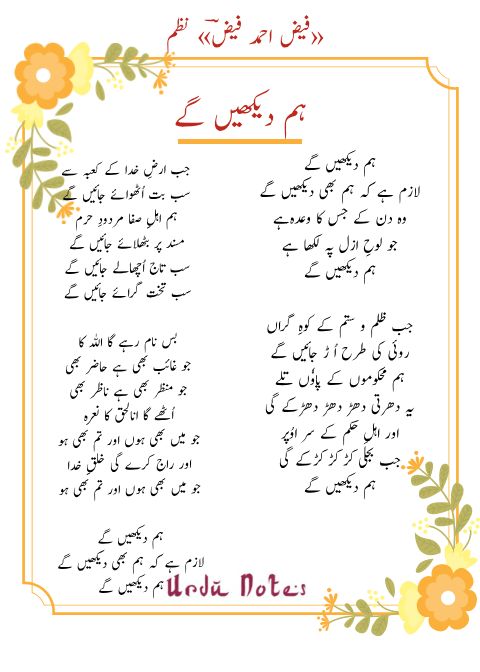 «فیض احمد فیضؔ» نظم
ہم دیکھیں گے
ہم دیکھیں گے
لازم ہے کہ ہم بھی دیکھیں گے
وہ دن کے جس کا وعدہ ہے
جو لوحِ ازل پہ لکھا ہے
ہم دیکھیں گے
جب ظلم و ستم کے کوہِ گراں
روئی کی طرح اُڑ جائیں گے
ہم محکوموں کے پاوٴں تلے
یہ دھرتی دھڑ دھڑ دھڑکے گی
اور اہلِ حکم کے سر اوٗپر
جب بجلی کڑ کڑ کڑکے گی
ہم دیکھیں گے
جب ارضِ خدا کے کعبہ سے
سب بت اُٹھوائے جائیں گے
ہم اہلِ صفا مردودِ حرم
مسند پر بٹھلائے جائیں گے
سب تاج اُچھالے جائیں گے
سب تخت گرائے جائیں گے
بس نام رہے گا اللہ کا
جو غائب بھی ہے حاضر بھی
جو منظر بھی ہے ناظر بھی
اُٹھے گا انالحق کا نعرہ
جو میں بھی ہوں اور تم بھی ہو
اور راج کرے گی خلقِ خدا
جو میں بھی ہوں اور تم بھی ہو
ہم دیکھیں گے
لازم ہے کہ ہم بھی دیکھیں گے
ہم دیکھیں گے
Urdu Notes